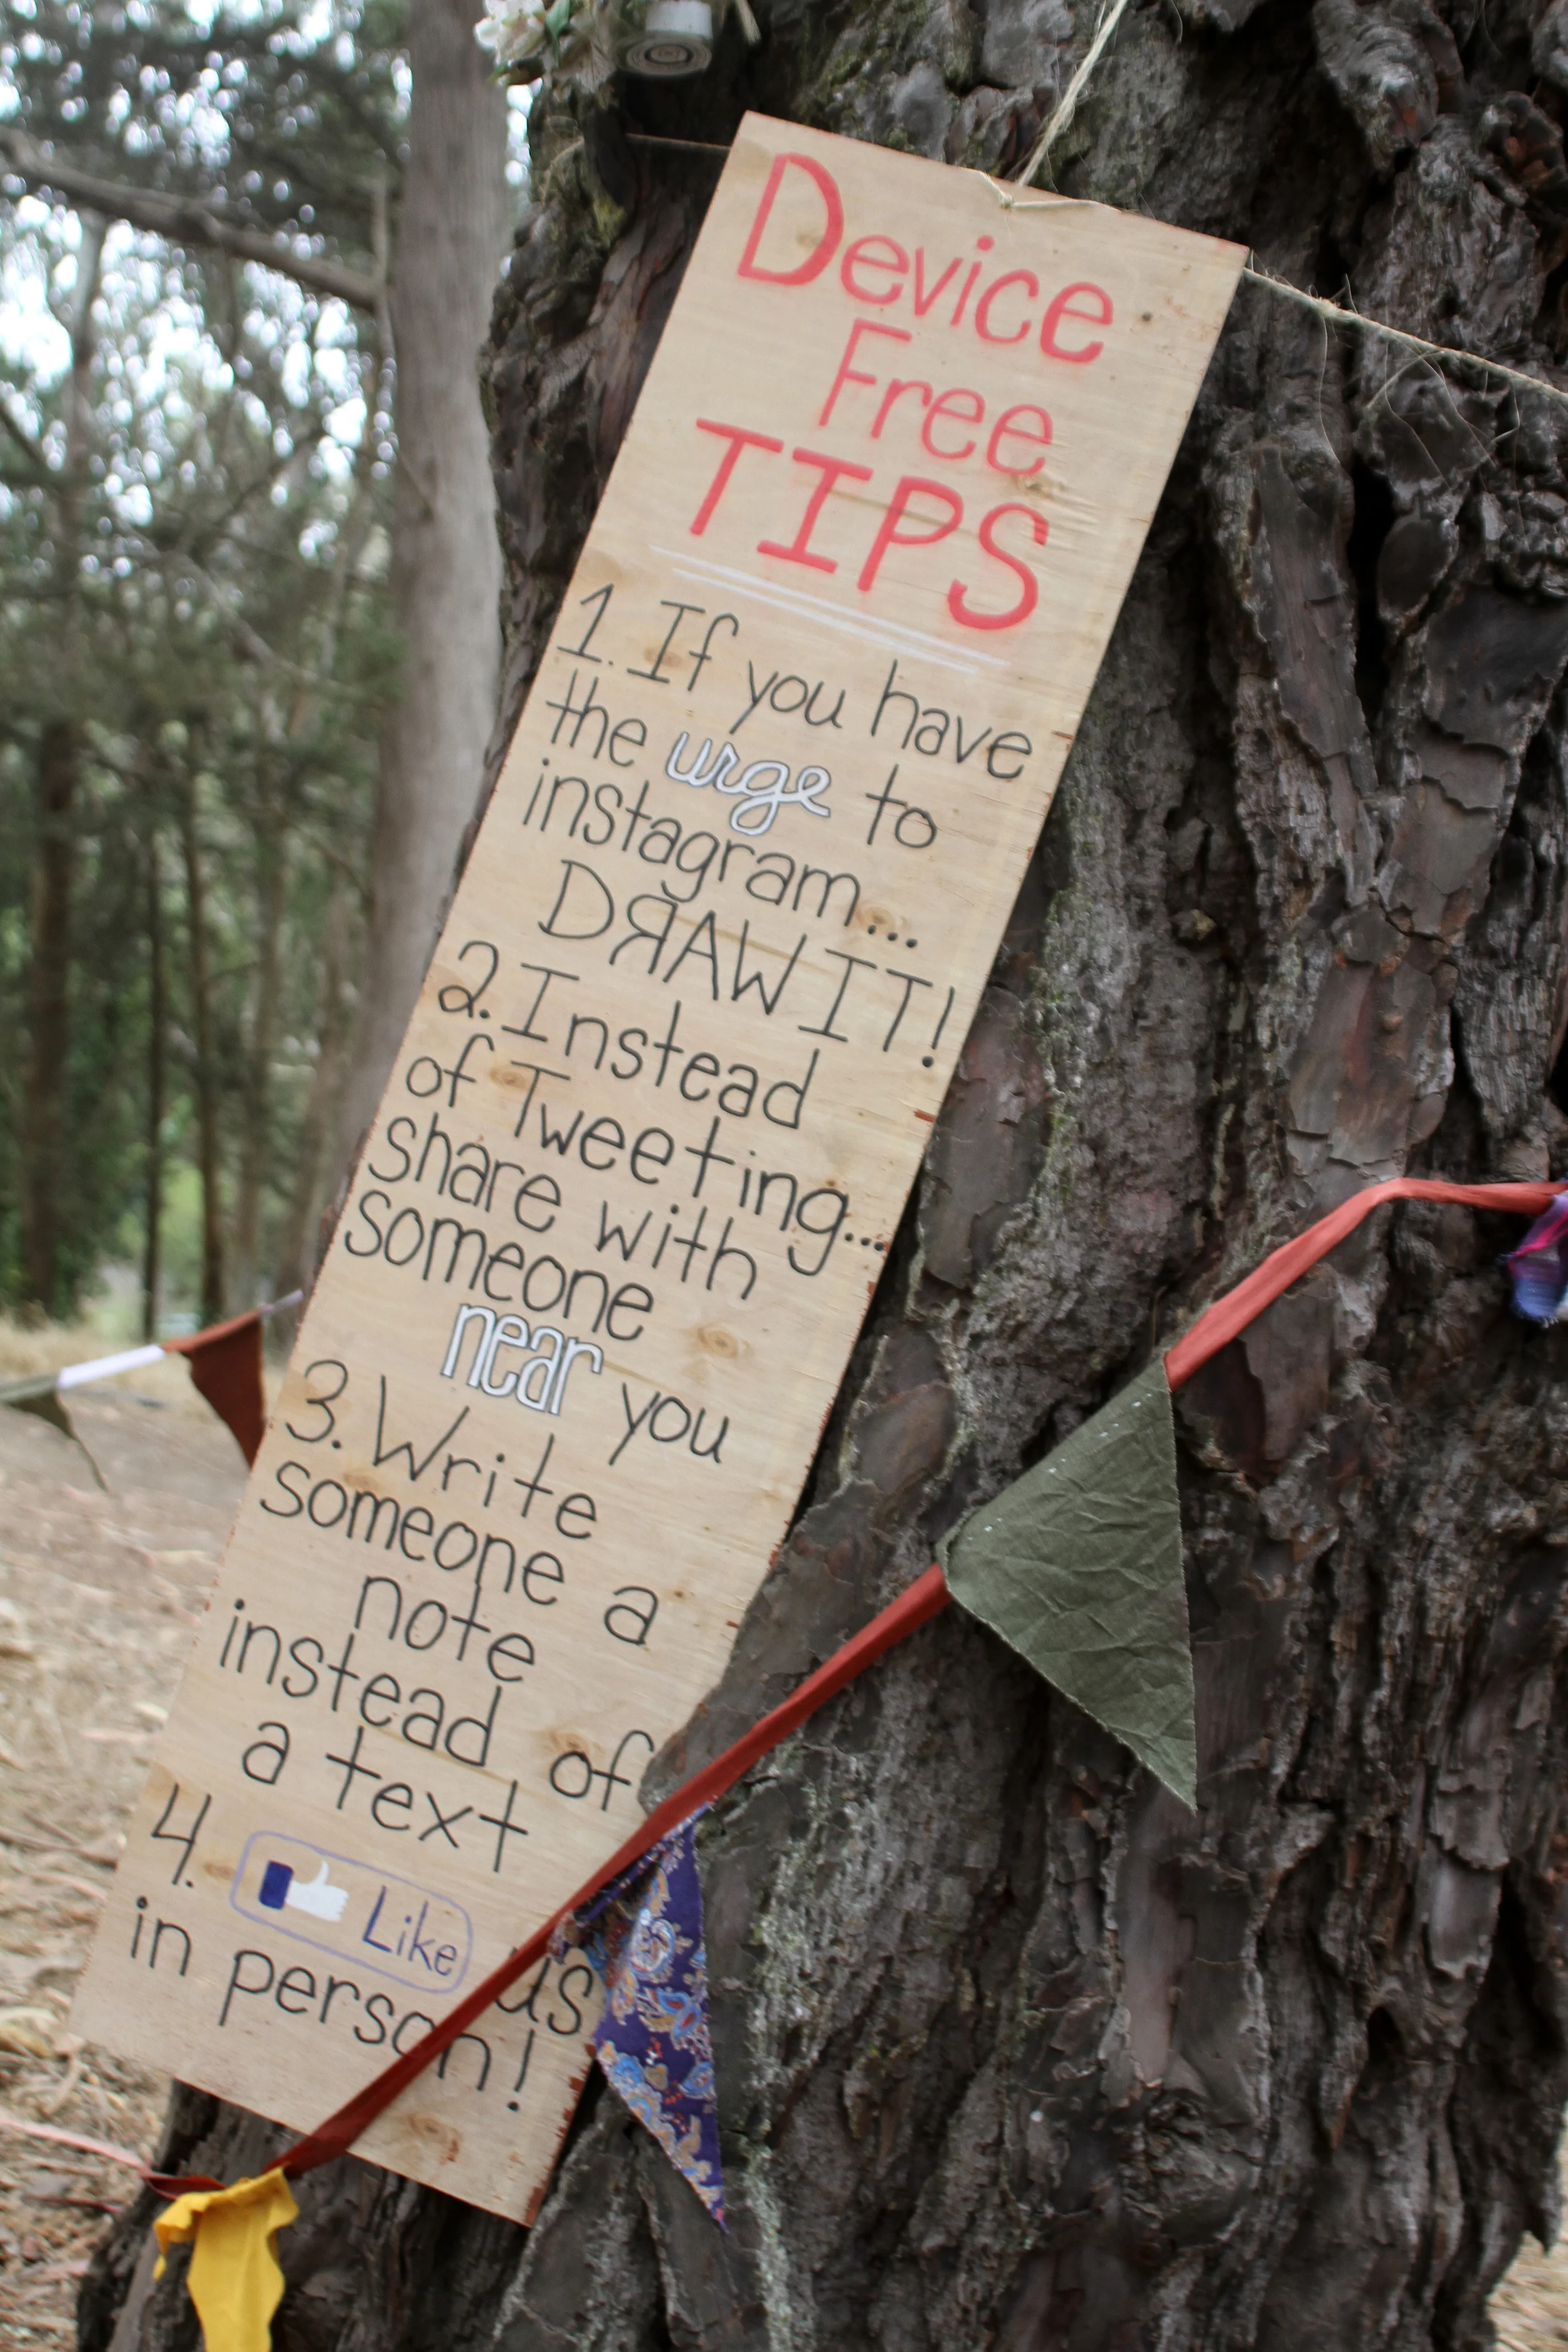 Device
Free
TIPS
1. If you have
the urge to
instagram...
DRAW IT!
2. Instead
of Tweeting...
share with
someone
near you
3. Write
someone a
note
instead of
a text
4. Like us
in person!